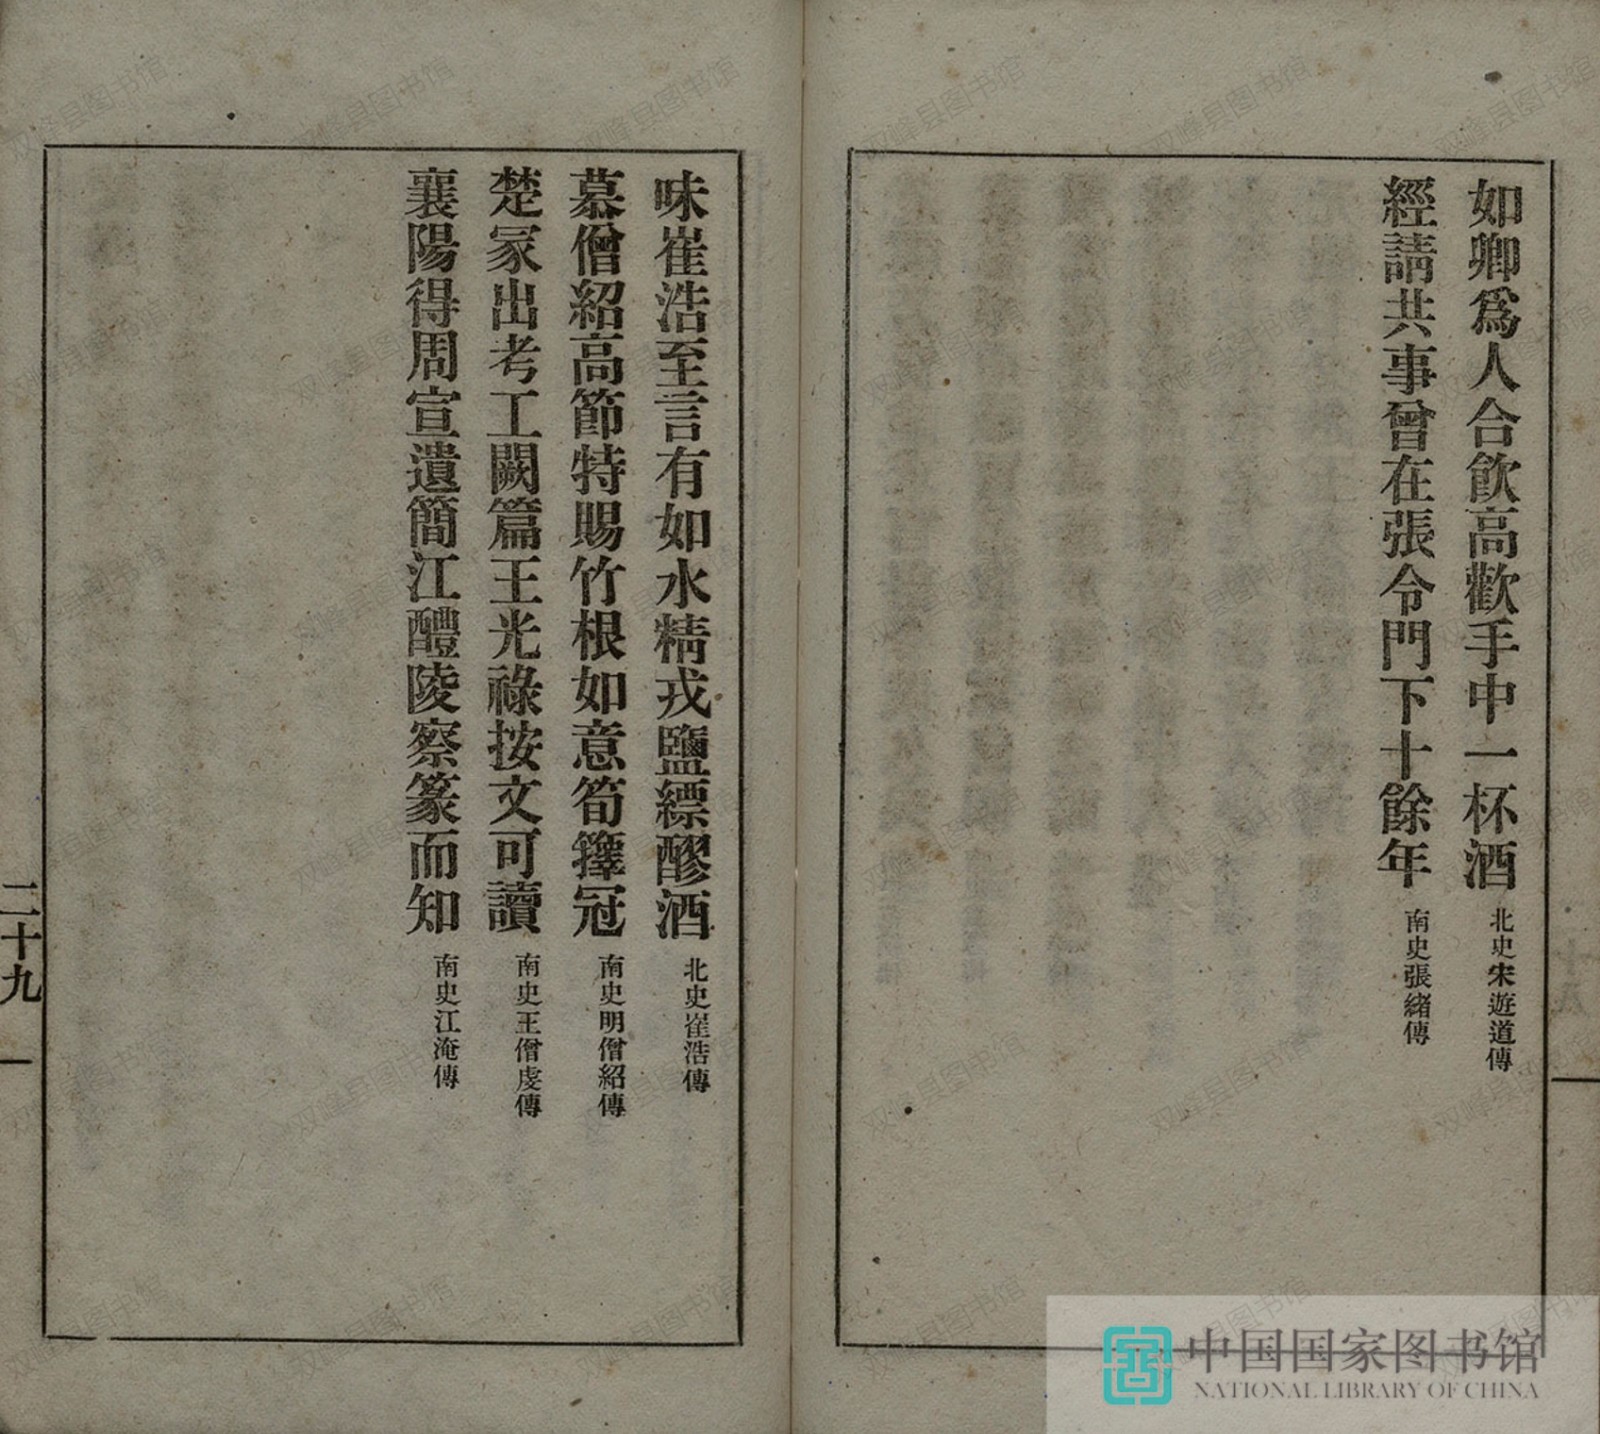 如卿爲人合飮高歡手中一杯酒 北史宋遊道傳
經請共事曾在張令門下十餘年 南史張緒傳
味崔浩至言有如水精戎鹽縹醪酒 北史崔浩傳
慕僧紹高節特賜竹根如意筍籜冠 南史明僧紹傳
楚冢出考工闕篇王光祿按文可讀 南史王僧虔傳
襄陽得周宣遺簡江醴陵察篆而知 南史江淹傳
二十九
中国国家图书馆
NATIONAL LIBRARY OF CHINA
双峰县图书馆